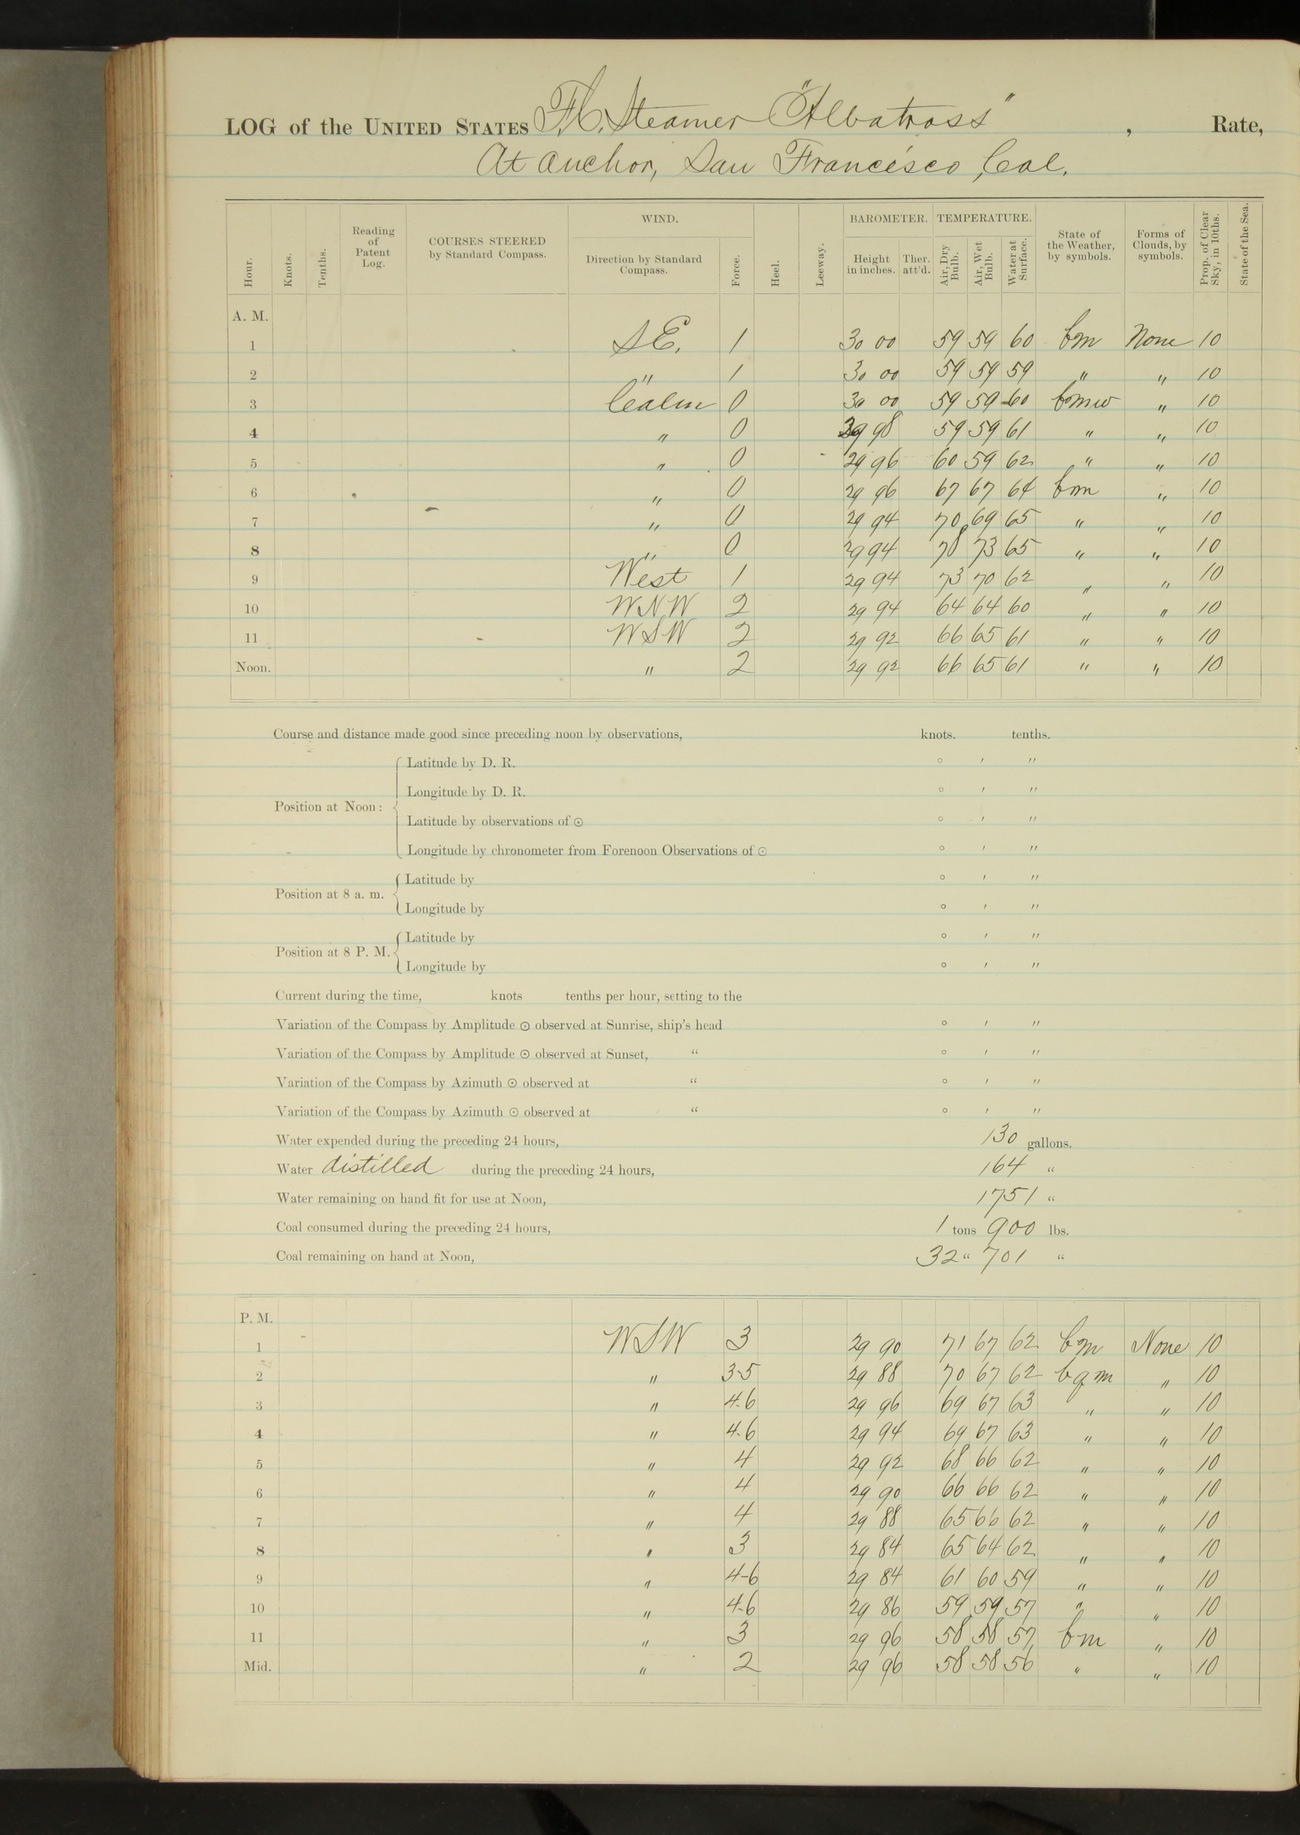 LOG of the UNITED STATES F.C. Steamer "Albatross", Rate,
At anchor, San Francisco, Cal.
Hour. Knots. Tenths. Reading of Patent Log. COURSES STEERED by Standard Compass. WIND. Direction by Standard Compass. Force. Heel. Leeway. BAROMETER. Height in inches. Ther. att'd. TEMPERATURE. Air, Dry Bulb. Air, Wet Bulb. Water at Surface. State of the Weather, by symbols. Forms of Clouds, by symbols. Prop. of Clear Sky, in 10ths. State of the Sea.
A. M.
1 S E. 1 30 00 59 59 60 bm None 10
2 " 1 30 00 59 59 59 " " 10
3 Calm 0 30 00 59 59 60 bmw " 10
4 " 0 29 98 59 59 61 " " 10
5 " 0 29 96 60 59 62 " " 10
6 " 0 29 96 67 67 64 bm " 10
7 " 0 29 94 70 69 65 " " 10
8 " 0 29 94 78 73 65 " " 10
9 West 1 29 94 73 70 62 " " 10
10 WNW 2 29 94 64 64 60 " " 10
11 WSW 2 29 92 66 65 61 " " 10
Noon. " 2 29 92 66 65 61 " " 10
Course and distance made good since preceding noon by observations, knots. tenths.
Latitude by D. R. ° ′ ″
Longitude by D. R. ° ′ ″
Position at Noon:
Latitude by observations of ☉ ° ′ ″
Longitude by chronometer from Forenoon Observations of ☉ ° ′ ″
Latitude by ° ′ ″
Position at 8 a. m.
Longitude by ° ′ ″
Latitude by ° ′ ″
Position at 8 P. M.
Longitude by ° ′ ″
Current during the time, knots tenths per hour, setting to the
Variation of the Compass by Amplitude ☉ observed at Sunrise, ship's head ° ′ ″
Variation of the Compass by Amplitude ☉ observed at Sunset, " ° ′ ″
Variation of the Compass by Azimuth ☉ observed at " ° ′ ″
Variation of the Compass by Azimuth ☉ observed at " ° ′ ″
Water expended during the preceding 24 hours, 130 gallons.
Water distilled during the preceding 24 hours, 164 "
Water remaining on hand fit for use at Noon, 1751 "
Coal consumed during the preceding 24 hours, 1 tons 900 lbs.
Coal remaining on hand at Noon, 32 " 701 "
P. M.
1 WSW 3 29 90 71 67 62 bm None 10
2 " 3-5 29 88 70 67 62 bqm " 10
3 " 4-6 29 96 69 67 63 " " 10
4 " 4-6 29 94 69 67 63 " " 10
5 " 4 29 92 68 66 62 " " 10
6 " 4 29 90 66 66 62 " " 10
7 " 4 29 88 65 66 62 " " 10
8 " 3 29 84 65 64 62 " " 10
9 " 4-6 29 84 61 60 59 " " 10
10 " 4-6 29 86 59 59 57 " " 10
11 " 3 29 96 58 58 57 bm " 10
Mid. " 2 29 96 58 58 56 " " 10